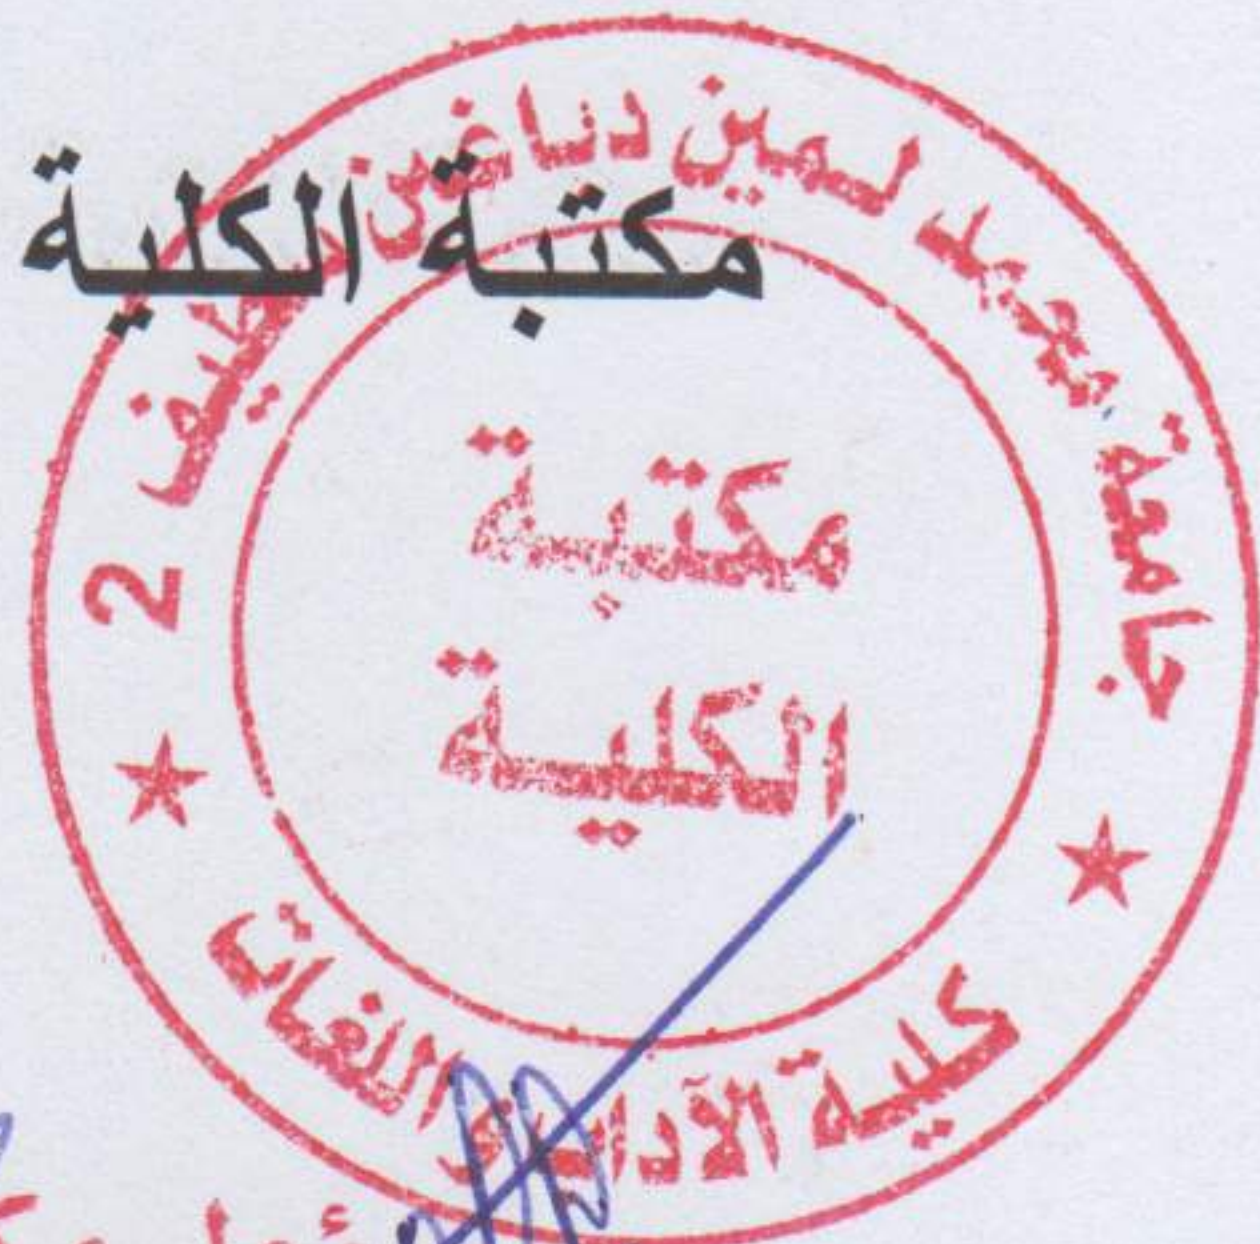 مكتبة الكلية
جامعة محمد لمين دباغين سطيف 2
مكتبة
الكلية
كلية الآداب و اللغات